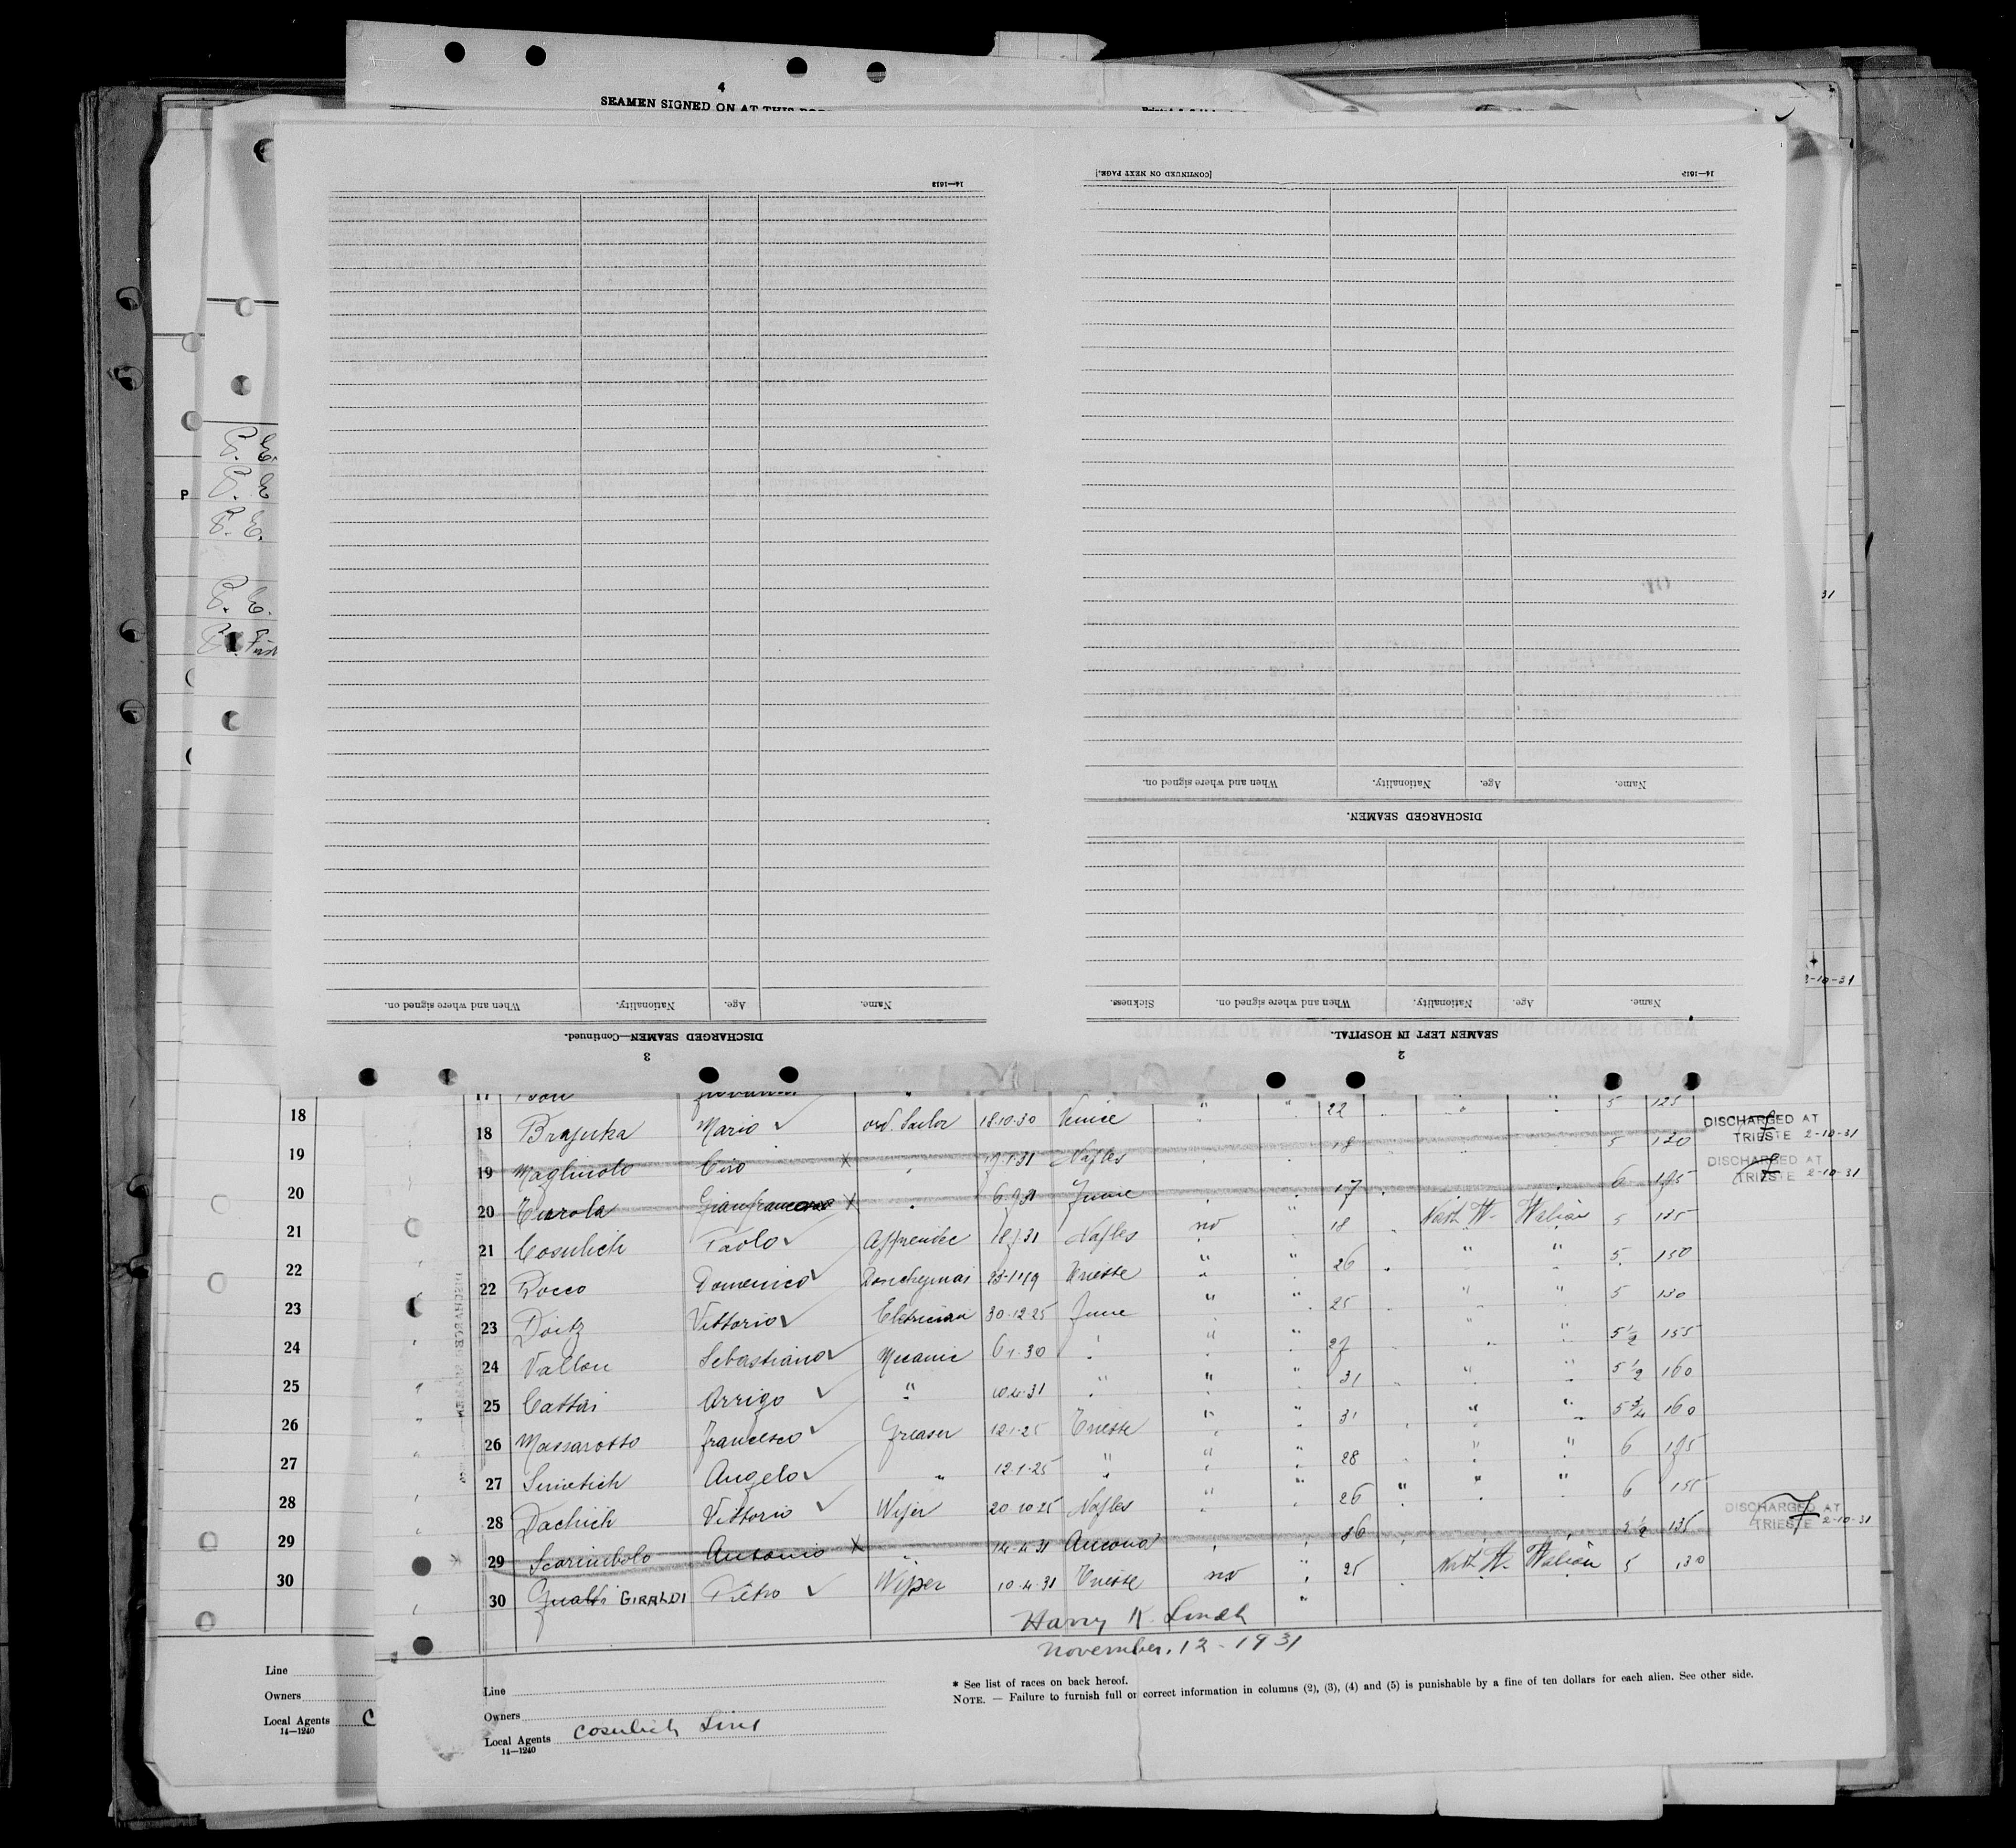 4
SEAMEN SIGNED ON AT THIS
14—1613
[CONTINUED ON NEXT PAGE.]
14—1613
P. E.
P. E
P. E.
P. E.
P
31
When and where signed on. Nationality. Age. Name.
DISCHARGED SEAMEN.
2-10-31
Sickness. When and where signed on. Nationality. Age. Name.
SEAMEN LEFT IN HOSPITAL.
2
When and where signed on. Nationality. Age. Name.
DISCHARGED SEAMEN—Continued.
3
17 5 125
18 18 Brajuka Mario ✓ ord. Sailor 18.10.30 Venice " " 22 " " DISCHARGED AT TRIESTE 2-10-31
19 19 Magliuolo Ciro X " 17.1.31 Naples 18 5 120 DISCHARGED AT TRIESTE 2-10-31
20 20 Turola Gianfrancesco X " 6.9.31 Fiume 17 6 175
21 21 Cosulich Paolo ✓ Apprendic Naples no " 18 North It. Italian 5 135
22 22 Rocco Domenico ✓ Trieste " " 26 " " 5 150
23 23 Doitz Vittorio ✓ 30.12.25 Fiume " " 25 " " 5 130
24 24 Vallon Sebastiano ✓ Mecanic 6.1.30 " " " 27 " " 5 1/2 155
25 25 Cattai Arrigo ✓ " 10.4.31 " " " 31 " " 5 1/2 160
26 26 Massarotto Francesco ✓ Greaser 12.1.25 Trieste " " 31 " " 5 3/4 160
27 27 Simetich Angelo ✓ " 12.1.25 " " " 28 " " 6 175
28 28 Dachich Vittorio ✓ Wiper 20.10.25 Naples " " 26 " " " 6 155
29 29 Scarimbolo Antonio X " 14.4.31 Ancona 5 1/2 136 DISCHARGED AT TRIESTE 2-10-31
30 30 GIRALDI Pietro ✓ Wiper 10.4.31 Trieste no " 25 North It. Italian 5 130
Harry K. Lindh
November. 12 - 1931
Line
Owners
Local Agents C
14—1240
Line
Owners
Local Agents Cosulich Line
14—1240
* See list of races on back hereof.
NOTE. — Failure to furnish full or correct information in columns (2), (3), (4) and (5) is punishable by a fine of ten dollars for each alien. See other side.